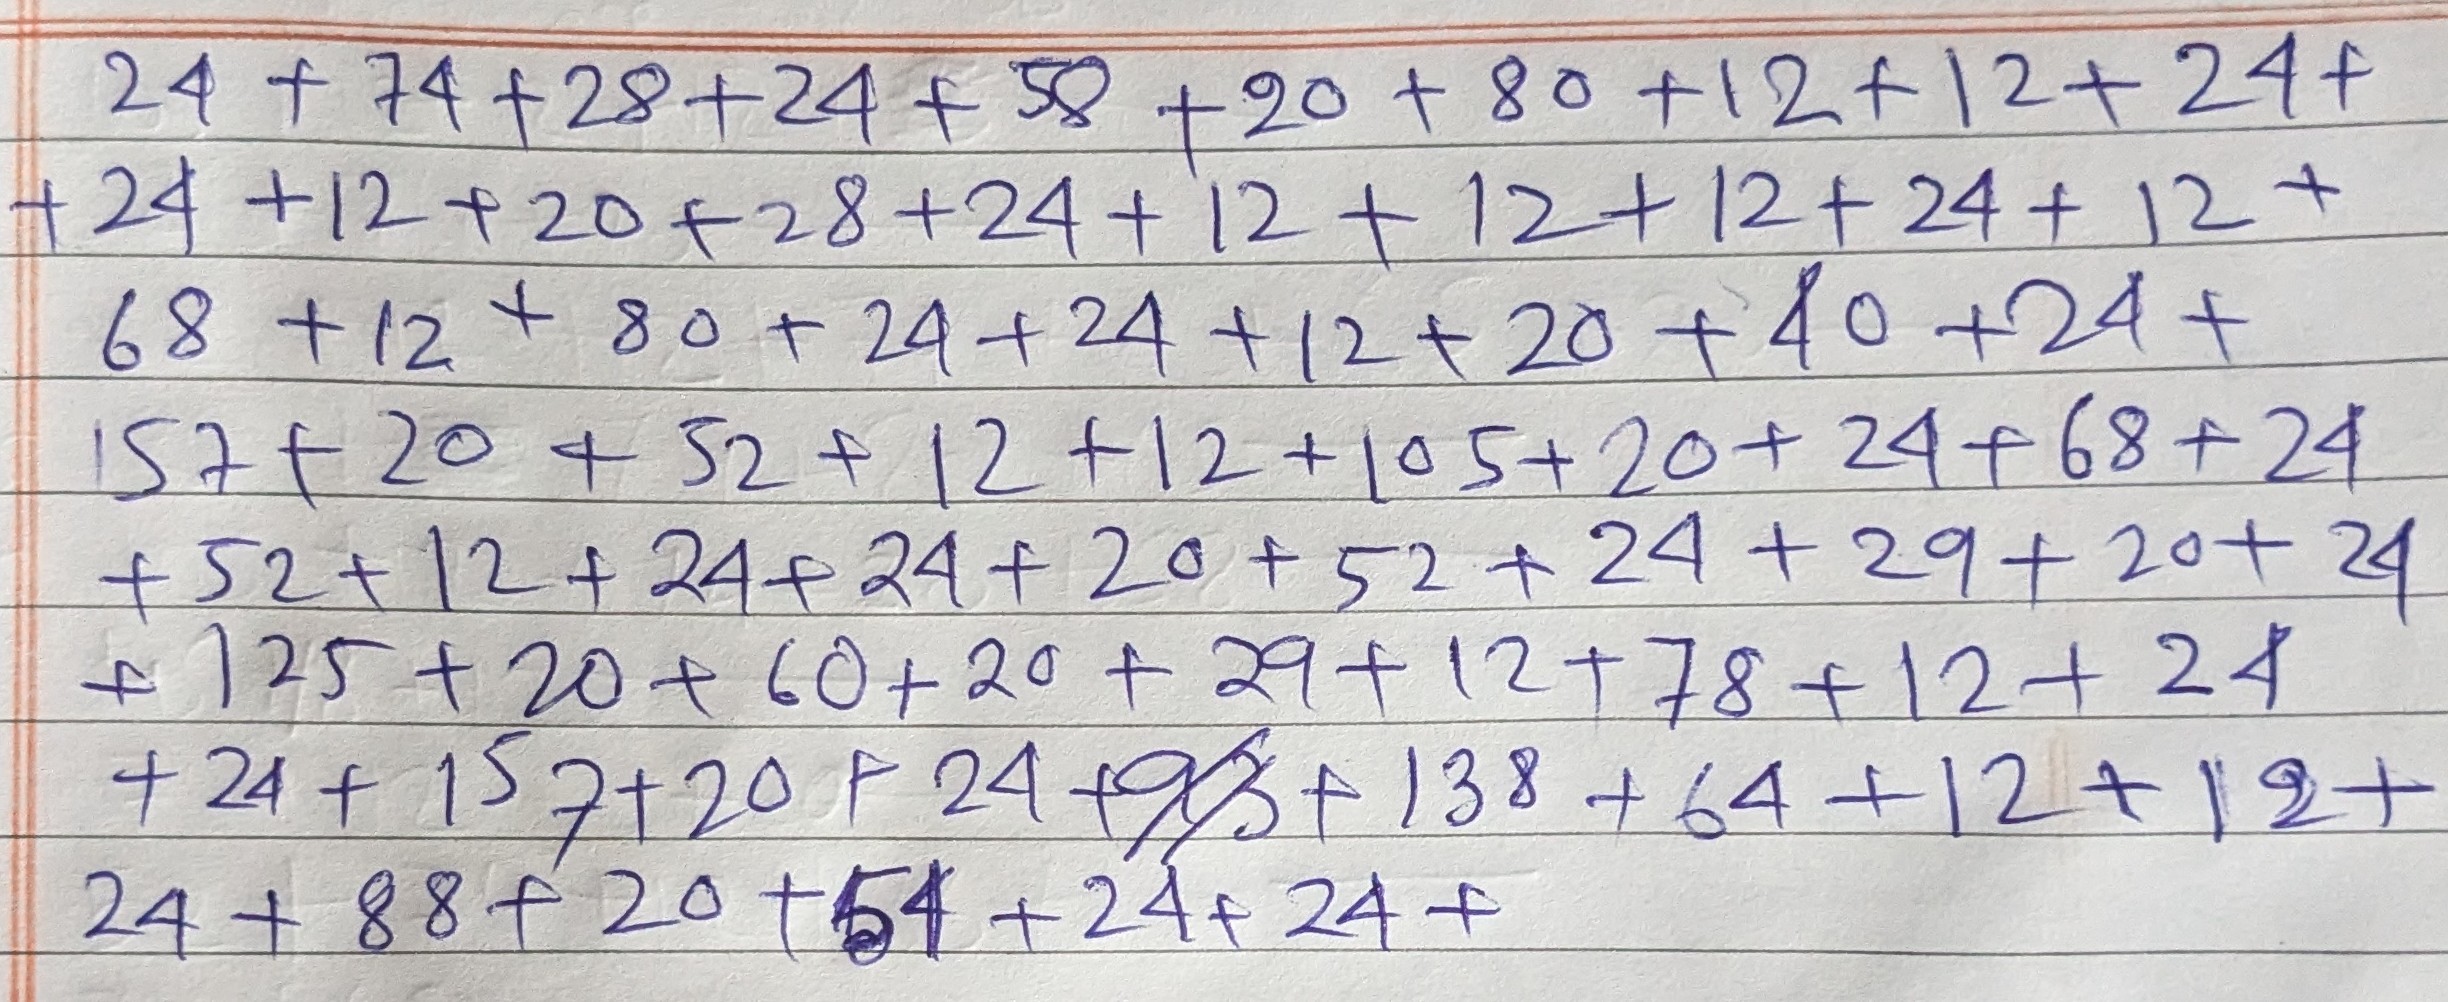 24 + 74 + 28 + 24 + 58 + 20 + 80 + 12 + 12 + 24 +
+ 24 + 12 + 20 + 28 + 24 + 12 + 12 + 12 + 24 + 12 +
68 + 12 + 80 + 24 + 24 + 12 + 20 + 40 + 24 +
157 + 20 + 52 + 12 + 12 + 105 + 20 + 24 + 68 + 24
+ 52 + 12 + 24 + 24 + 20 + 52 + 24 + 29 + 20 + 24
+ 125 + 20 + 60 + 20 + 29 + 12 + 78 + 12 + 24
+ 24 + 157 + 20 + 24 + + 138 + 64 + 12 + 12 +
24 + 88 + 20 + 54 + 24 + 24 +